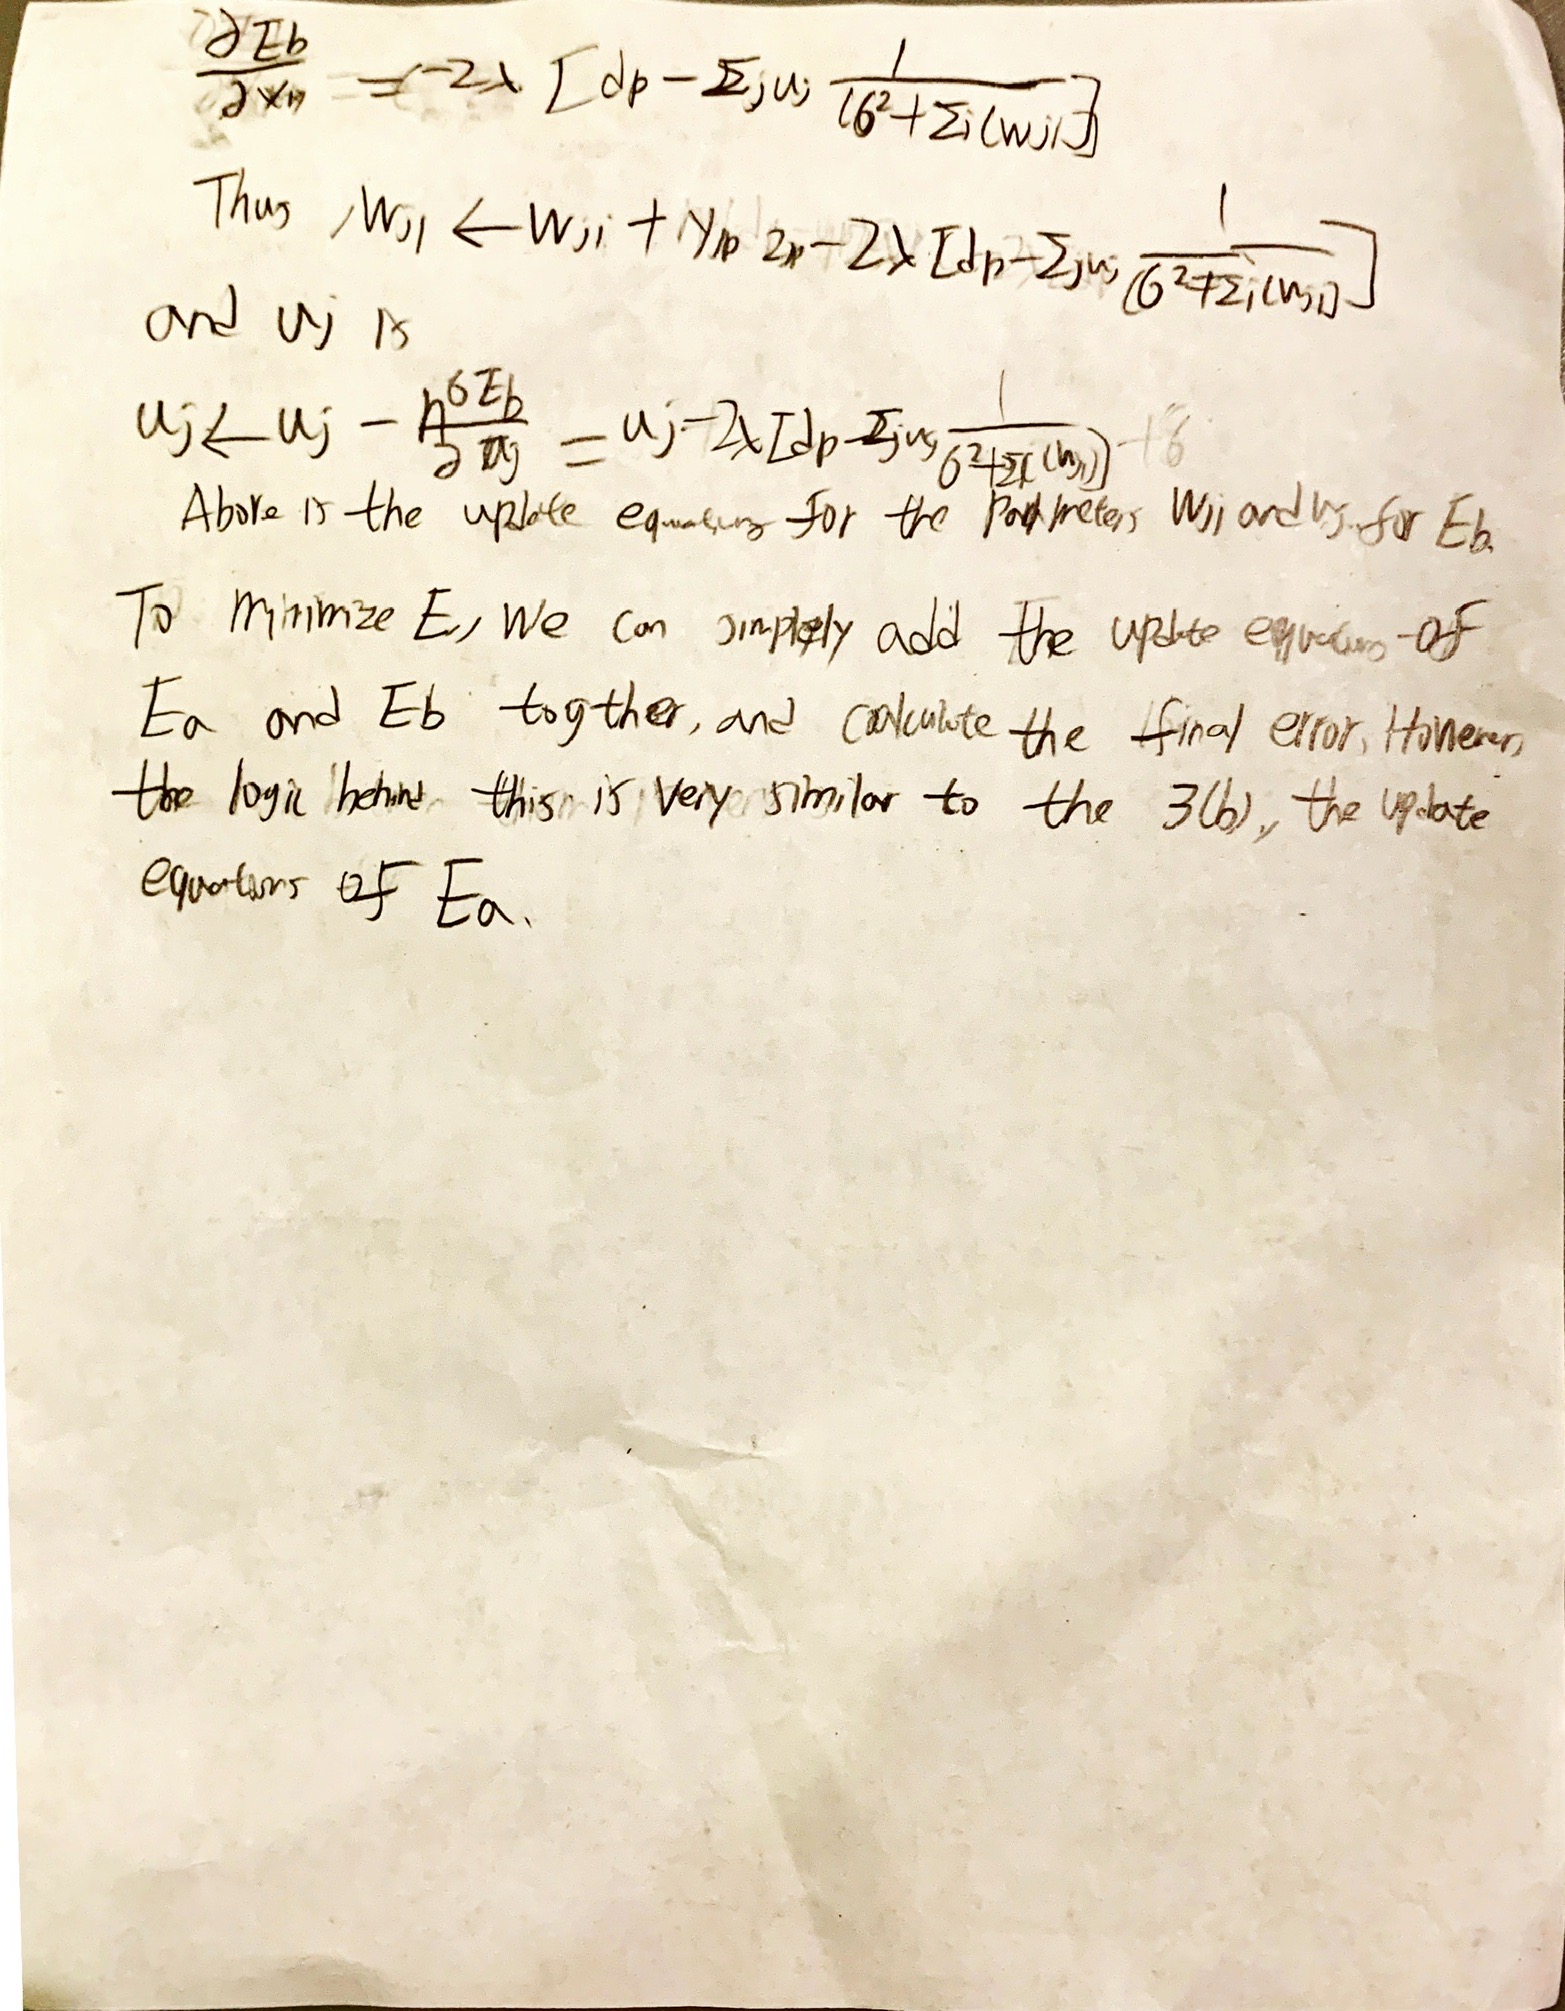 ∂Eb/∂xn = -2λ [dp - Σj uj 1/(6² + Σi(wji)]
Thus, Wji ← Wji + yjp zp - 2λ [dp - Σj uj 1/(6² + Σi(wji)]
and uj is
uj ← uj - η 6Eb/∂uj = uj - 2λ [dp - Σj uj 1/6² + Σi(wji)]
Above is the update equations for the parameters Wji and uj for Eb.
To minimize E, We can simplely add the update equations of
Ea and Eb together, and calculate the final error. However,
the logic behind this is very similar to the 3(b), the update
equations of Ea.